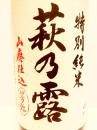 特別純米
萩乃露
山廃仕込